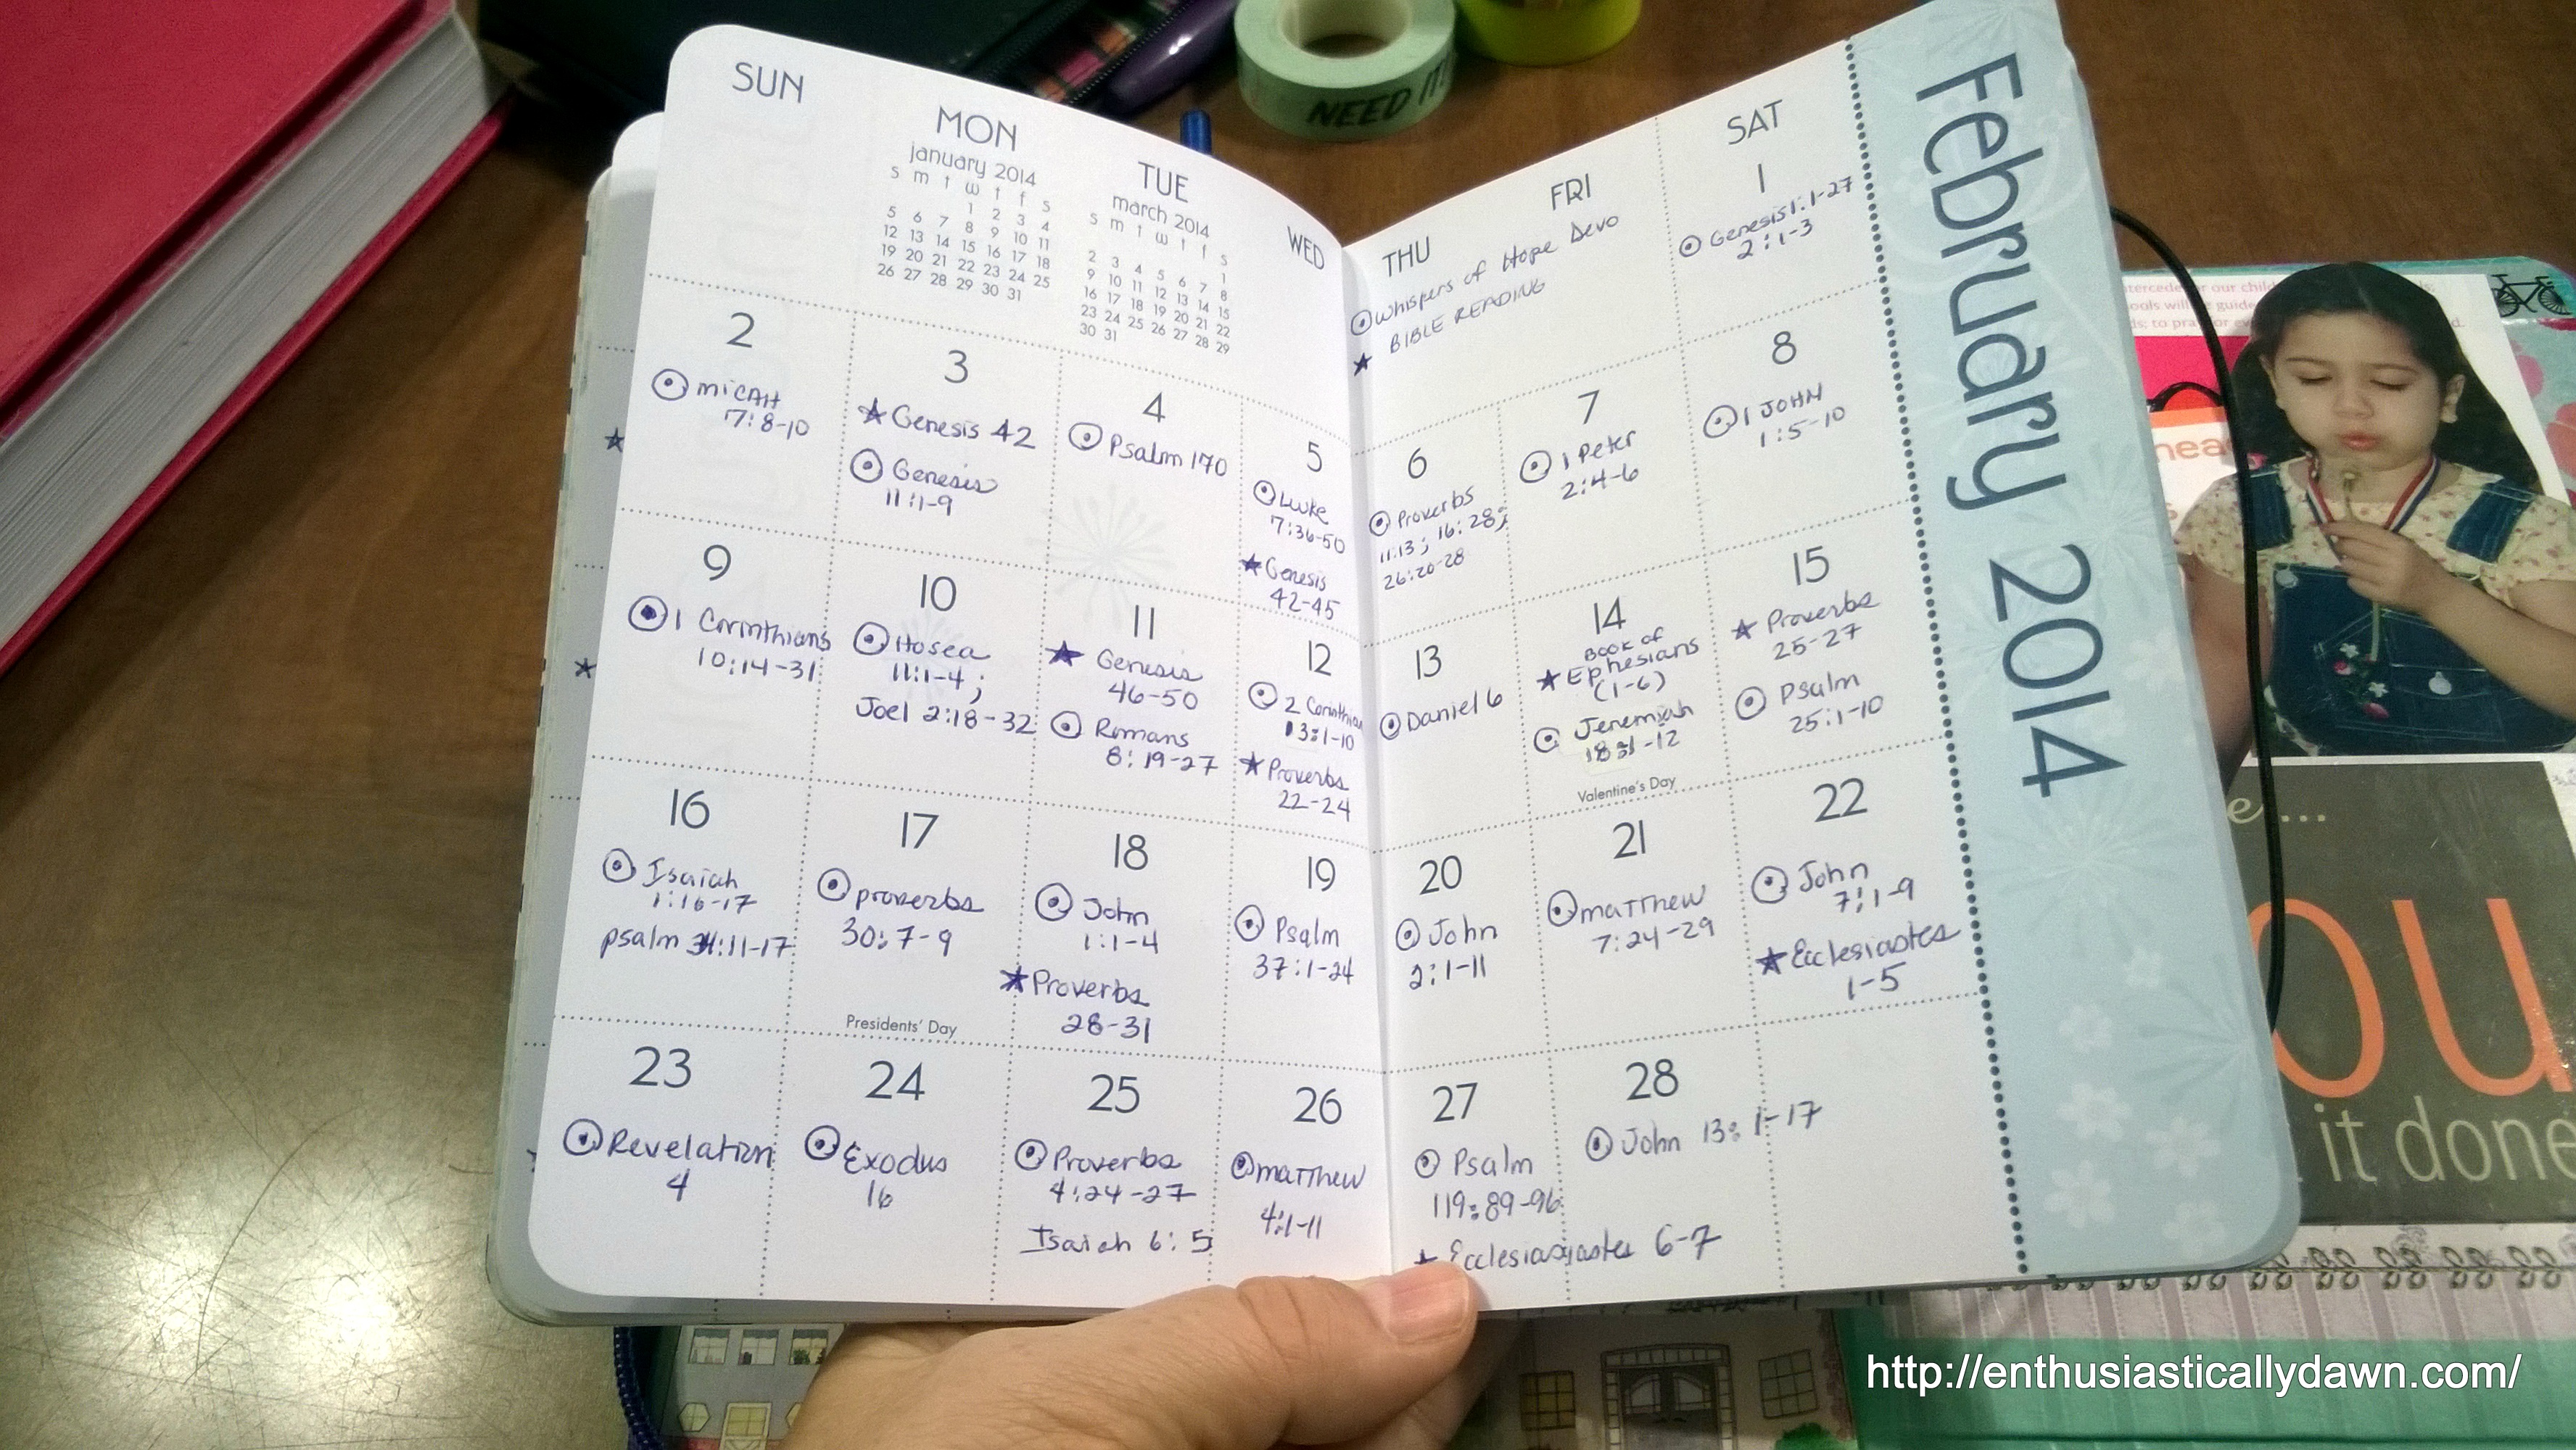 NEED IT!
SUN
MON
january 2014
s m t w t f s
1 2 3 4
5 6 7 8 9 10 11
12 13 14 15 16 17 18
19 20 21 22 23 24 25
26 27 28 29 30 31
TUE
march 2014
s m t w t f s
1
2 3 4 5 6 7 8
9 10 11 12 13 14 15
16 17 18 19 20 21 22
23 24 25 26 27 28 29
30 31
WED
THU
FRI
SAT
Whispers of Hope Devo
★ BIBLE READING
1
Genesis 1:1-27
2:1-3
2
micAH
7:8-10
3
★ Genesis 42
Genesis
11:1-9
4
Psalm 170
5
Luke
7:36-50
★ Genesis
42-45
6
Proverbs
11:13; 16:28;
26:20-28
7
1 Peter
2:4-6
8
1 JOHN
1:5-10
9
1 Corinthians
10:14-31
10
Hosea
11:1-4;
Joel 2:18-32
11
★ Genesis
46-50
Romans
8:19-27
12
2 Corinthian
13:1-10
★ Proverbs
22-24
13
Daniel 6
14
BOOK of
★ Ephesians
(1-6)
Jeremiah
18:1-12
Valentine's Day
15
★ Proverbs
25-27
Psalm
25:1-10
16
Isaiah
1:16-17
psalm 34:11-17
17
proverbs
30:7-9
Presidents' Day
18
John
1:1-4
★ Proverbs
28-31
19
Psalm
37:1-24
20
John
2:1-11
21
matthew
7:24-29
22
John
7:1-9
★ Ecclesiastes
1-5
23
Revelation
4
24
Exodus
16
25
Proverbs
4:24-27
Isaiah 6:5
26
matthew
4:1-11
27
Psalm
119:89-96
28
John 13:1-17
6-7
February 2014
our
it done
http://enthusiasticallydawn.com/